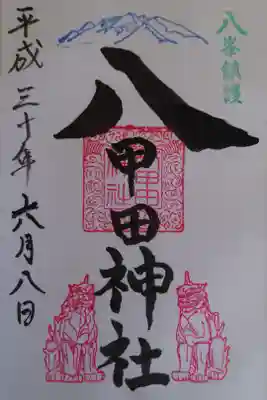 八峯鎮護
八甲田神社
平成三十年六月八日